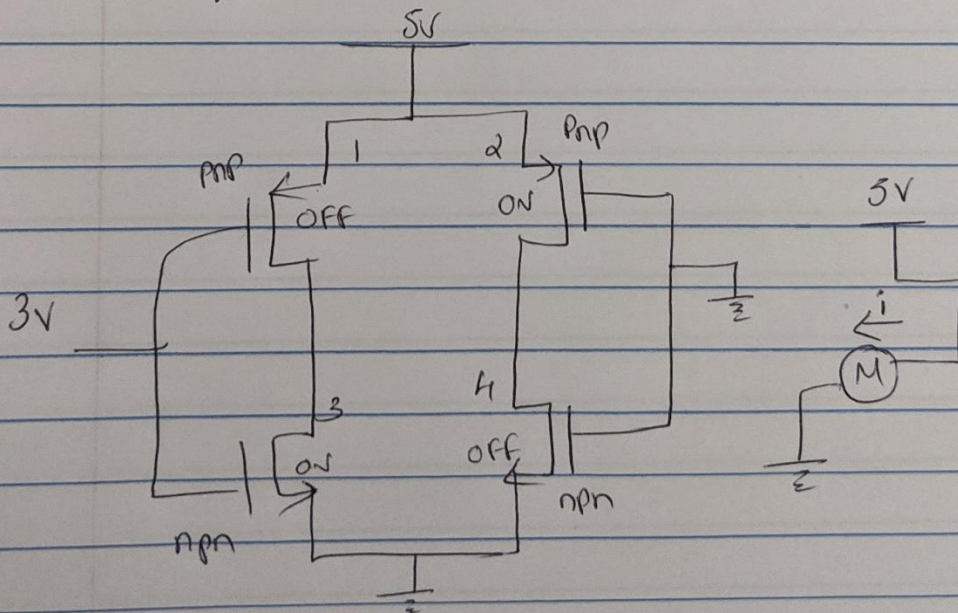 5V
1
2
pnp
pnp
OFF
ON
5V
3V
i
M
4
3
ON
OFF
npn
npn